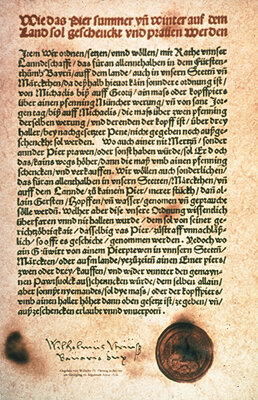 Wie das Pier summer vñ winter auf dem
Land sol geschenckt vnd prauen werden
Item Wir ordnen/setzen/vnnd wöllen/mit Rathe vnnser
Lanndtschafft/das füran allennthalben in dem Fürsten-
thumb Bayrn/auff dem lande/auch in vnsern Stettñ vñ
Märckten/da deßhalb hieuor kain sonndere ordnung ist/
von Michaelis biß auff Georij/ain mass oder kopffpiers
über ainen pfenning Müncher werung/vñ von sant Jor-
gen tag/biß auff Michaelis/die mass über zwen pfenning
derselben werung/vnd derenden der kopff ist/über drey
haller/bey nachgesetzter Pene/nicht gegeben noch außge-
schenckht sol werden. Wo auch ainer nit Mertzñ/sonder
annder Pier prawen/oder sonst haben würde/sol Er doch
das/kains wegs höher/dann die mass vmb ainen pfenning
schencken/vnd verkauffen. Wir wöllen auch sonderlichen/
das füran allenthalben in vnsern Stetten/Märckthen/vñ
auff dem Lannde/zů kainem Pier/merer stückh/dañ al-
lain Gersten/Hopffen/vñ wasser/genomen vñ gepraucht
sölle werdñ. Welher aber dise vnsere Ordnung wissentlich
überfaren vnnd nit hallten wurde/dem sol von seiner ge-
richtzöbrigkait/dasselbig vas Pier/zůstraff vnnachläß-
lich/so offt es geschicht/genommen werden. Jedoch wo
ain Güwirt von ainem Pierprewen in vnnsern Stettñ
Märckten/oder aufm lande/yezůzeiten ainen Emer piers/
zwen oder drey/kauffen/vnd wider vnntter den gemaynñ
nen Pawrsuolck ausschencken würde/dem selben allain/
aber sonnst nyemandes/sol dye mass/oder der kopffpiers/
vmb ainen haller höher dann oben gesetzt ist/zegeben/vñ/
außzeschencken erlaubt vnnd vnuerpotñ.